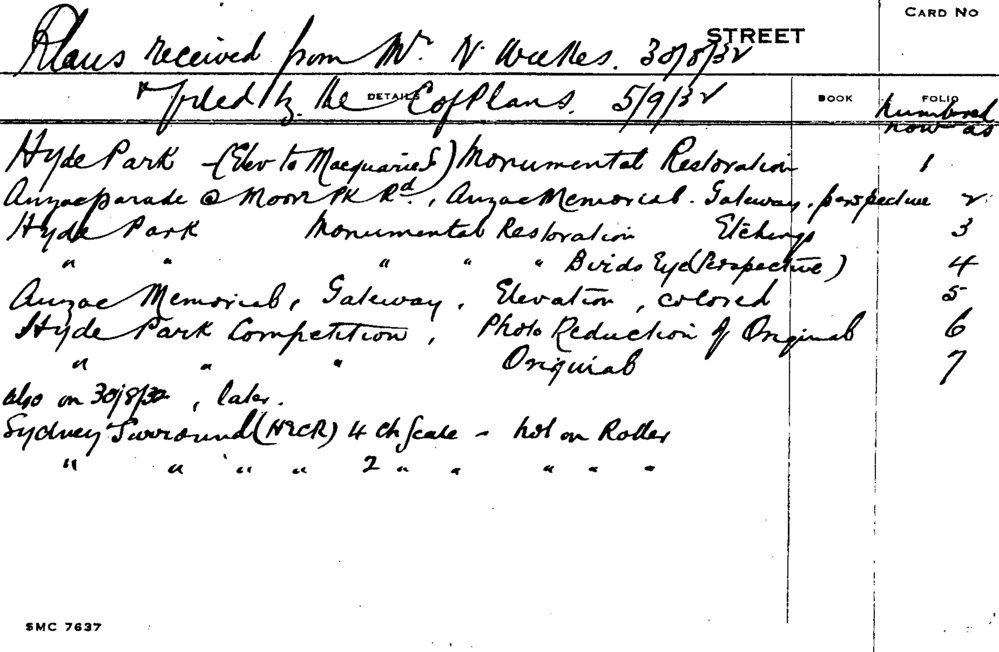 CARD No
STREET
Plans received from Mr. N. Weekes. 30/8/32
DETAILS BOOK FOLIO
& filed by the C of Plans. 5/9/32 numbered now as
Hyde Park - (Elev to Macquarie S) Monumental Restoration 1
Anzac parade @ Moore Pk Rd., Anzac Memorial. Gateway. perspective 2
Hyde Park Monumental Restoration Etchings 3
" " " " " Birds Eye (Perspective) 4
Anzac Memorial, Gateway, Elevation, colored 5
Hyde Park Competition, Photo Reduction of Original 6
" " " Original 7
also on 30/8/32, later.
Sydney Surround (HECR) 4 ch Scale - not on Roller
" " " " 2 " " " " "
SMC 7637